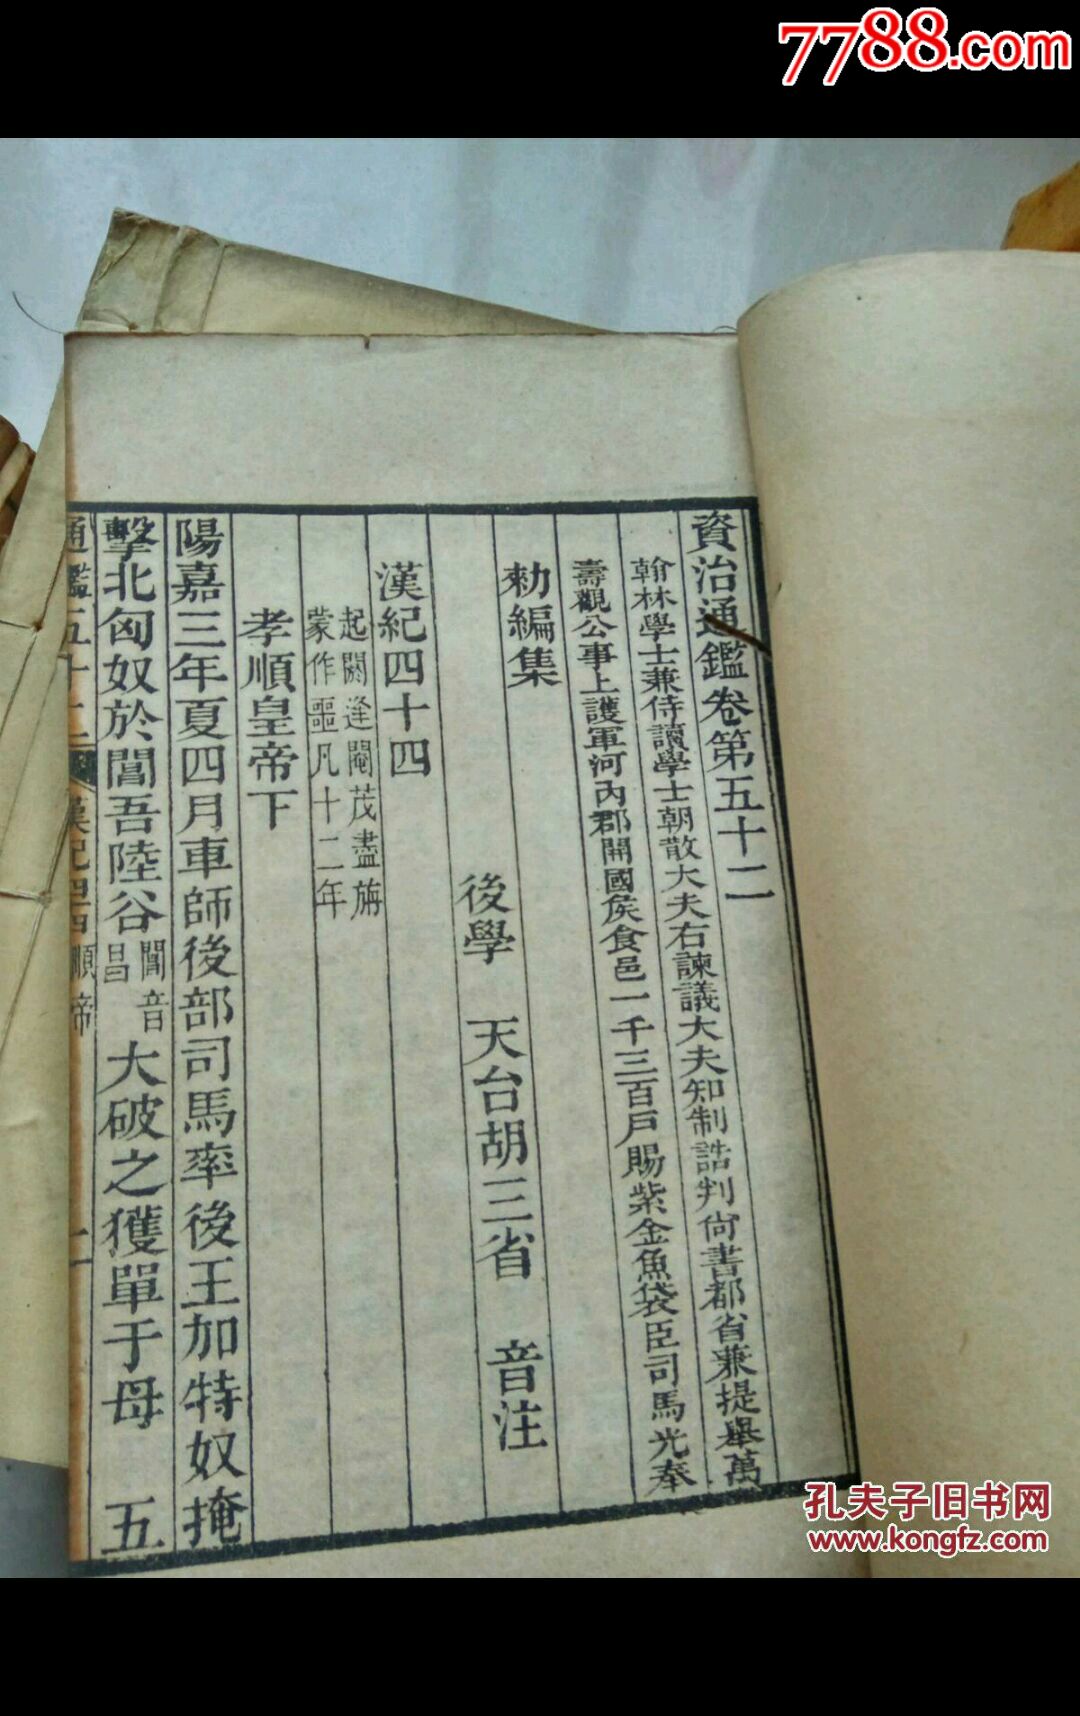 7788.com
資治通鑑卷第五十二
翰林學士兼侍讀學士朝散大夫右諫議大夫知制誥判尙書都省兼提舉萬
壽觀公事上護軍河內郡開國侯食邑一千三百戶賜紫金魚袋臣司馬光奉
勅編集
後學 天台胡三省 音注
漢紀四十四
起閼逢閹茂盡旃
蒙作噩凡十二年
孝順皇帝下
陽嘉三年夏四月車師後部司馬率後王加特奴掩
擊北匈奴於閶吾陸谷
閶音
昌
大破之獲單于母 五
通鑑五十二 漢紀四十四 順帝 一
孔夫子旧书网
www.kongfz.com